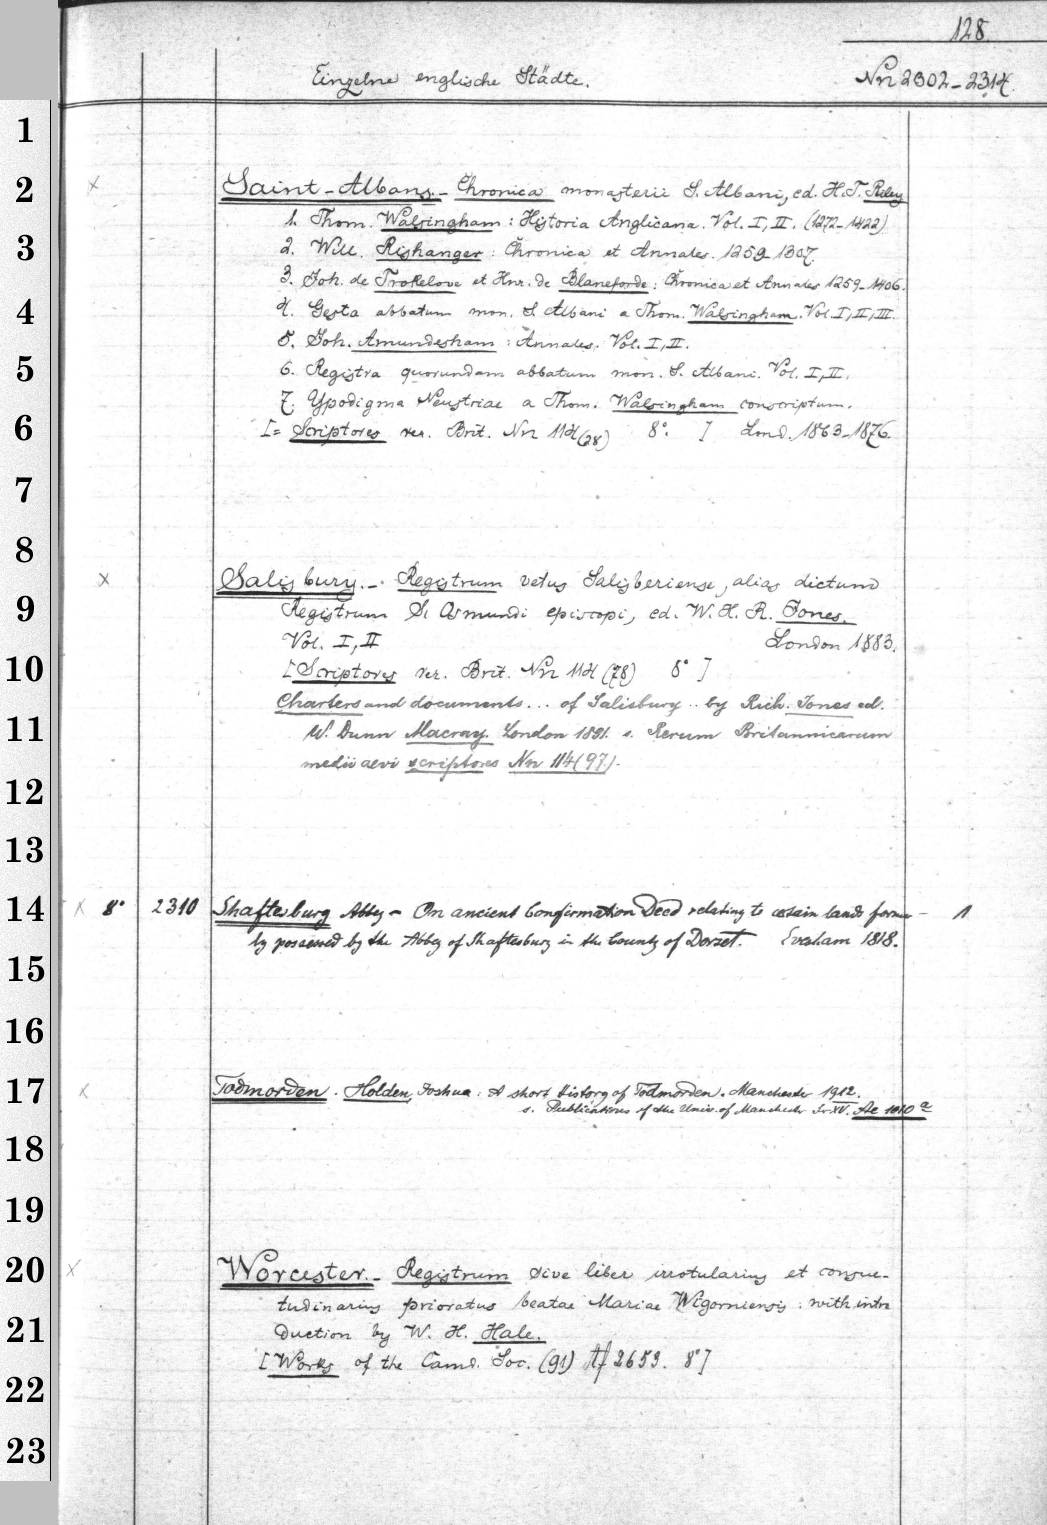 128.
Einzelne englische Städte. Nn 2302-2314.
1
2
3
4
5
6
7
8
9
10
11
12
13
14
15
16
17
18
19
20
21
22
23
x Saint-Albans.- Chronica monasterii S. Albani, ed. H.T. Riley
1. Thom. Walsingham: Historia Anglicana. Vol. I, II. (1272-1422)
2. Will. Rishanger: Chronica et Annales. 1259-1307.
3. Joh. de Trokelove et Hnr. de Blaneforde: Chronica et Annales 1259-1406.
4. Gesta abbatum mon. S Albani a Thom. Walsingham. Vol. I, II, III.
5. Joh. Amundesham: Annales. Vol. I, II.
6. Registra quorundam abbatum mon. S. Albani. Vol. I, II.
7. Ypodigma Neustriae a Thom. Walsingham conscriptum.
[= Scriptores rer. Brit. Nn 114 (28) 8°. ] Lond. 1863-1876.
x Salisbury.-. Registrum vetus Salisberiense, alias dictum
Registrum S. Osmundi episcopi, ed. W. H. R. Jones.
Vol. I, II London 1883.
[Scriptores rer. Brit. Nn 114 (78) 8° ]
Charters and documents... of Salisbury .. by Rich. Jones ed.
W. Dunn Macray. London 1891. s. Rerum Britannicarum
medii aevi scriptores Nn 114 (97).
x 8° 2310 Shaftesburg Abbey - On ancient Confirmation Deed relating to certain lands former- 1
ly possessed by the Abbey of Shaftesbury in the County of Dorset. Evesham 1818.
x Todmorden. Holden, Joshua: A short history of Todmorden. Manchester 1912.
s. Publications of the Univ. of Manchester Sr. XV. Ae 1010 a
x Worcester.- Registrum sive liber irrotularius et consue-
tudinarius prioratus beatae Mariae Wigorniensis: with intro
duction by W. H. Hale.
[Works of the Camd. Soc. (91) Af 2653. 8°]